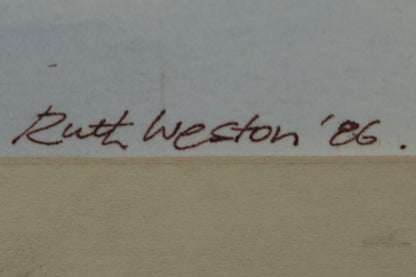 Ruth Weston '86.